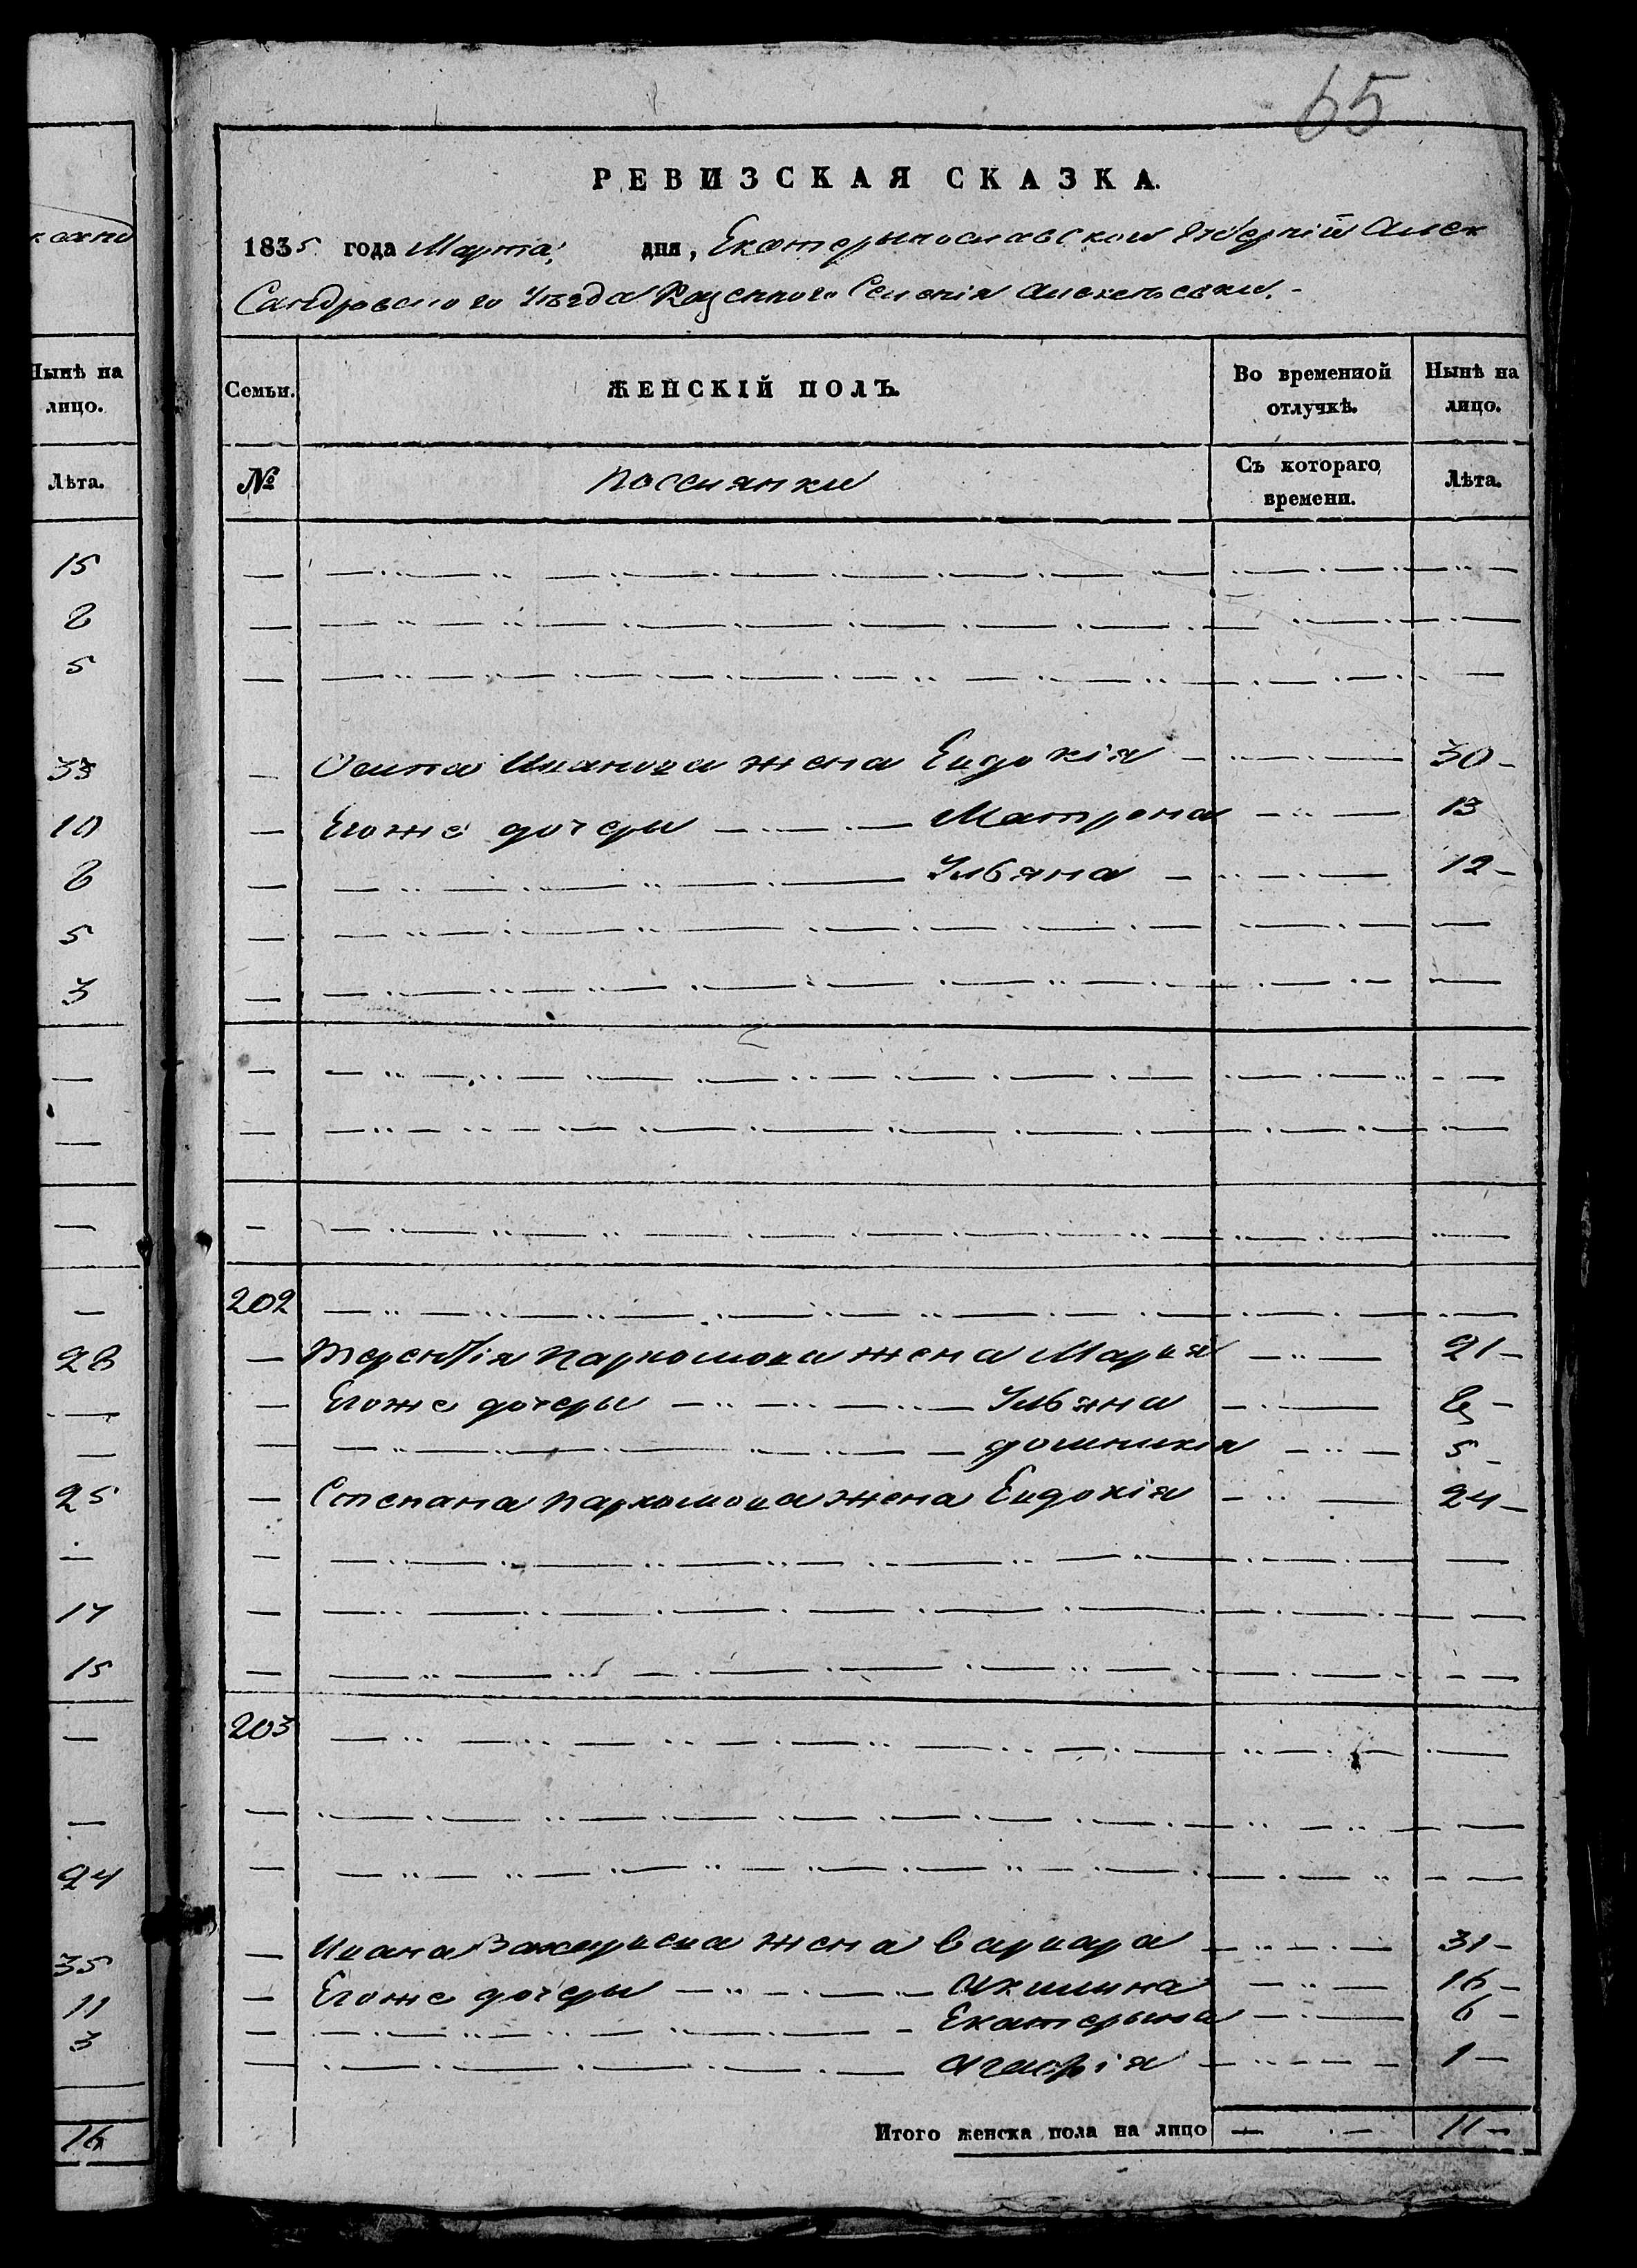 65
РЕВИЗСКАЯ СКАЗКА.
1835 года Марта, дня, Екатерынославской Губерній Алек
Сандровского Уѣзда Казенного Селенія
Семьи. ЖЕНСКІЙ ПОЛЪ. Во временной отлучкѣ. Нынѣ на лицо.
№ Поселянки Съ котораго времени. Лѣта.
Осипа Иванова жена Евдокія 30
Егоже дочеры Матрона 13
Ульяна 12
202
Терентія Пархомова жена Марія 21
Егоже дочеры Ульяна 8
домникія 5
Степана Пархомова жена Евдокія 24
203
Ивана жена Варвара 31
Егоже дочеры Акилина 16
Екатерына 6
Агафія 1
Итого женска пола на лицо 11
Нынѣ на
лицо.
Лѣта.
15
8
5
33
10
8
5
3
28
25
17
15
24
35
11
3
16